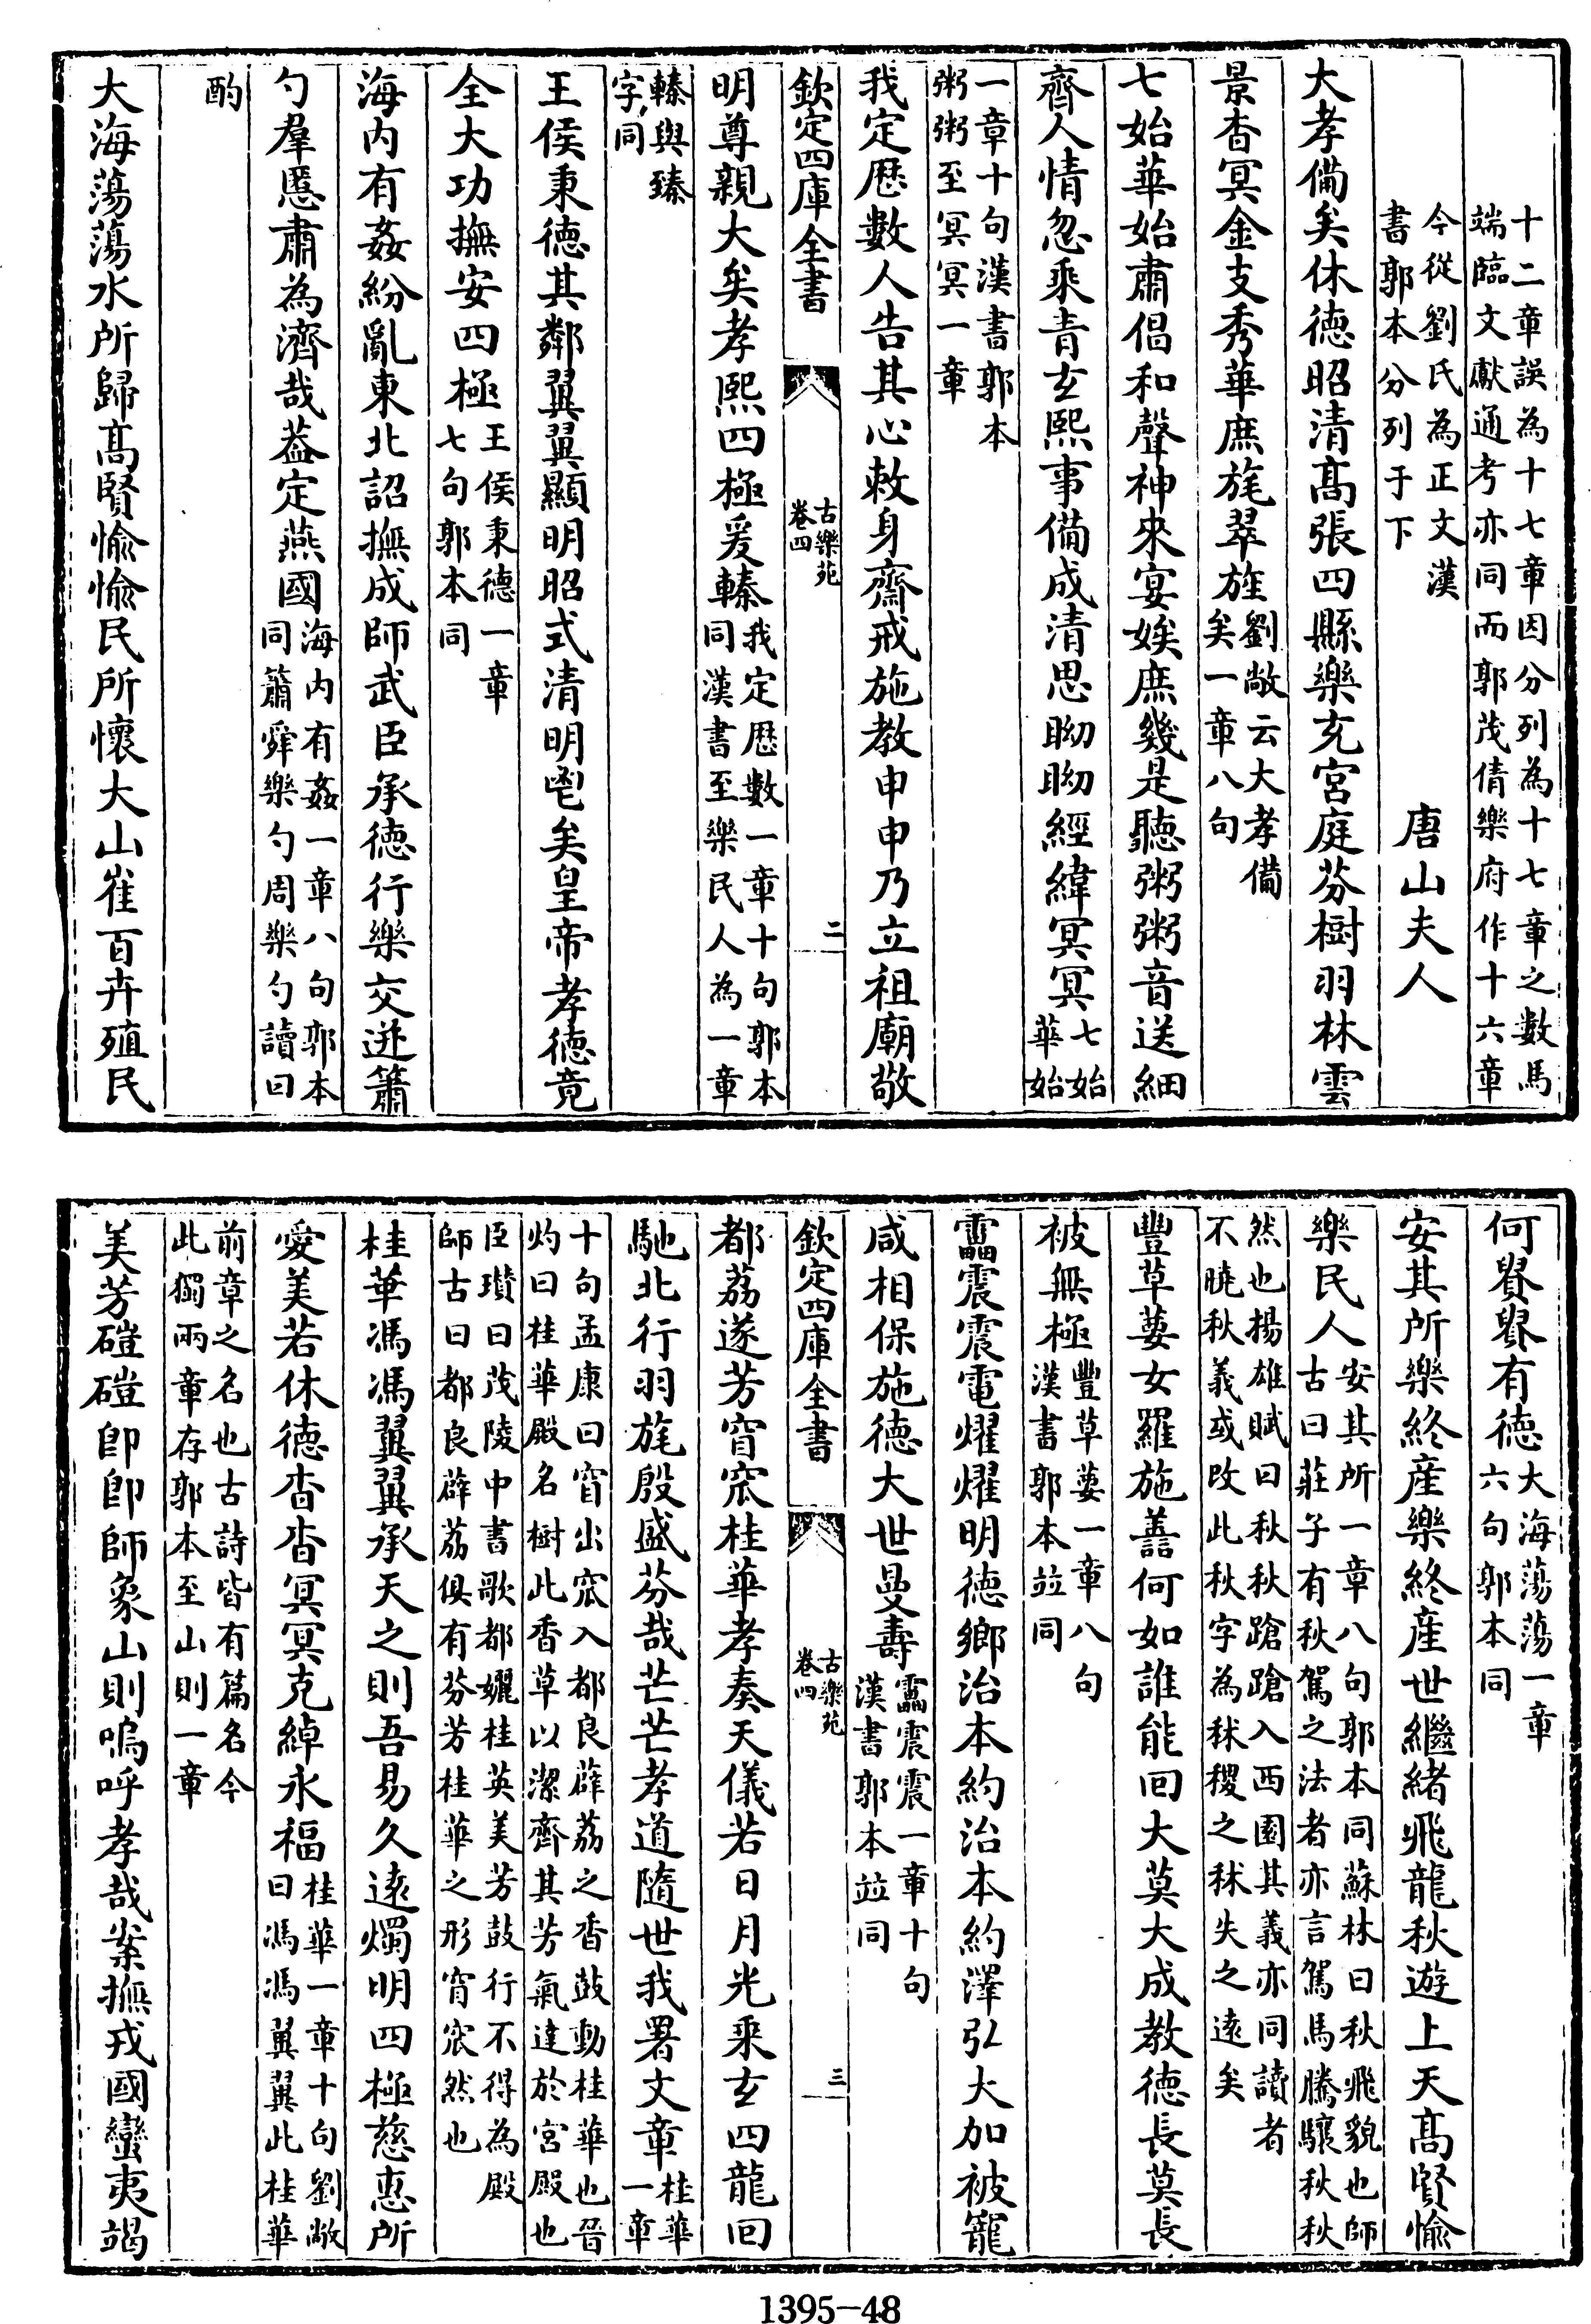 十二章誤為十七章因分列為十七章之數馬
端臨文獻通考亦同而郭茂倩樂府作十六章
今從劉氏為正文漢
書郭本分列于下
唐山夫人
大孝備矣休徳昭清髙張四縣樂充宮庭芬樹羽林雲
景杳冥金支秀華庶旄翠旌
劉敞云大孝備
矣一章八句
七始華始肅倡和聲神來宴娭庶幾是聽粥粥音送細
齊人情忽乘青玄熙事備成清思眑眑經緯冥冥
七始
華始
一章十句漢書郭本
粥粥至冥冥一章
我定歴數人告其心敕身齋戒施教申申乃立祖廟敬
欽定四庫全書
古樂苑
卷四
二
明尊親大矣孝熙四極爰轃
我定歴數一章十句郭本
同漢書至樂民人為一章
轃與臻
字同
王侯秉德其鄰翼翼顯明昭式清明鬯矣皇帝孝徳竟
全大功撫安四極
王侯秉德一章
七句郭本同
海内有姦紛亂東北詔撫成師武臣承徳行樂交逆簫
勺羣慝肅為濟哉葢定燕國
海内有姦一章八句郭本
同簫舜樂勺周樂勺讀曰
酌
大海蕩蕩水所歸髙賢愉愉民所懷大山崔百卉殖民
何貴貴有徳
大海蕩蕩一章
六句郭本同
安其所樂終産樂終産世繼緒飛龍秋遊上天髙賢愉
樂民人
安其所一章八句郭本同蘇林曰秋飛貌也師
古曰莊子有秋駕之法者亦言駕馬騰驤秋秋
然也揚雄賦曰秋秋蹌蹌入西園其義亦同讀者
不曉秋義或改此秋字為秫稷之秫失之逺矣
豐草葽女羅施善何如誰能回大莫大成教徳長莫長
被無極
豐草葽一章八句
漢書郭本竝同
靁震震電燿燿明徳鄉治本約治本約澤弘大加被寵
咸相保施徳大世曼壽
靁震震一章十句
漢書郭本竝同
欽定四庫全書
古樂苑
卷四
三
都荔遂芳窅窊桂華孝奏天儀若日月光乘玄四龍回
馳北行羽旄殷盛芬哉芒芒孝道隨世我署文章
桂華
一章
十句孟康曰窅出窊入都良薜荔之香鼓動桂華也晉
灼曰桂華殿名樹此香草以潔齊其芳氣達於宮殿也
臣瓚曰茂陵中書歌都孋桂英美芳鼓行不得為殿
師古曰都良薜荔俱有芬芳桂華之形窅窊然也
桂華馮馮翼翼承天之則吾易久逺燭明四極慈惠所
愛美若休德杳杳冥冥克綽永福
桂華一章十句劉敞
曰馮馮翼翼此桂華
前章之名也古詩皆有篇名今
此獨兩章存郭本至山則一章
美芳磑磑卽卽師象山則嗚呼孝哉案撫戎國蠻夷竭
1395-48